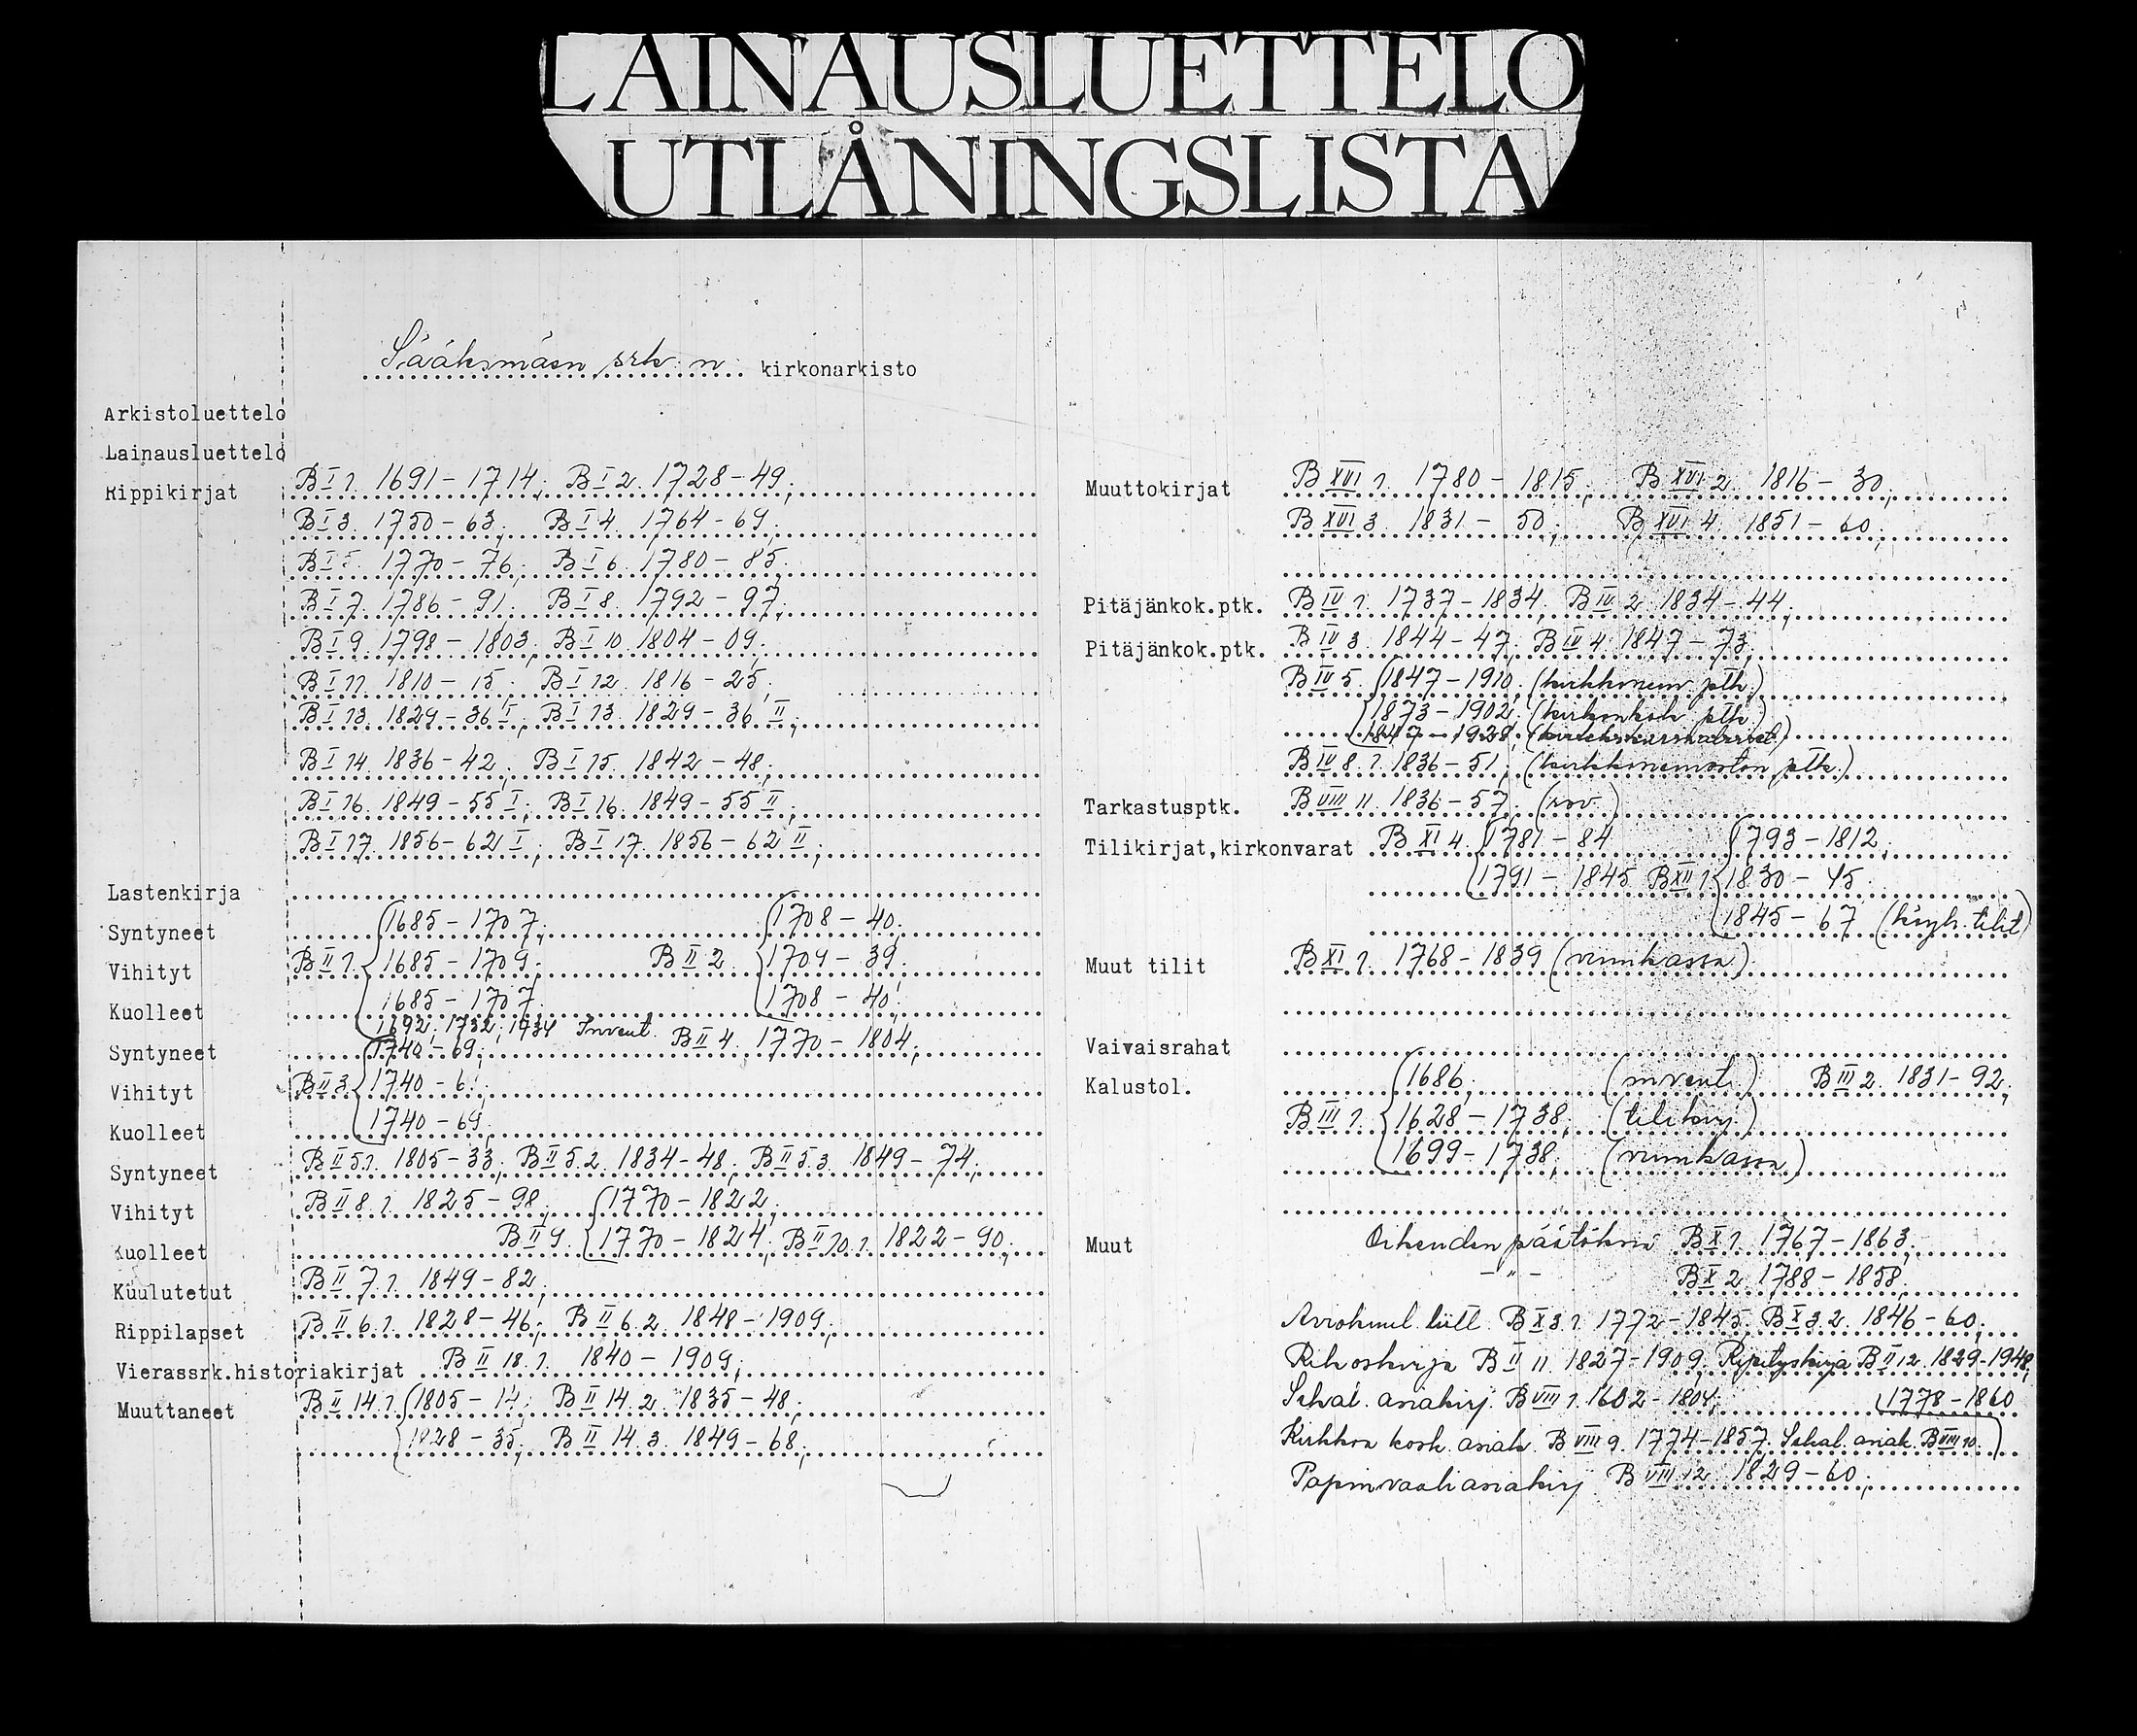 LAINAUSLUETTELO
UTLÅNINGSLISTA
Sääksmäen srk:n kirkonarkisto
Arkistoluettelo
Lainausluettelo
Rippikirjat B I 1. 1691-1714; B I 2. 1728-49;
B I 3. 1750-63; B I 4. 1764-69;
B I 5. 1770-76; B I 6. 1780-85;
B I 7. 1786-91; B I 8. 1792-97;
B I 9. 1798-1803; B I 10. 1804-09;
B I 11. 1810-15; B I 12. 1816-25;
B I 13. 1829-36 I; B I 13. 1829-36 II;
B I 14. 1836-42; B I 15. 1842-48;
B I 16. 1849-55 I; B I 16. 1849-55 II;
B I 17. 1856-62 I; B I 17. 1856-62 II;
Lastenkirja
Syntyneet 1685-1707; 1708-40;
Vihityt B II 1. 1685-1709; B II 2. 1709-39;
Kuolleet 1685-1707; 1708-40;
1692; 1732; 1734 Invent.
Syntyneet 1740-69; B II 4. 1770-1804;
Vihityt B II 3. 1740-6
Kuolleet 1740-69;
Syntyneet B II 5.1. 1805-33; B II 5.2. 1834-48; B II 5.3. 1849-74;
Vihityt B II 8.1. 1825-98; 1770-1822;
Kuolleet B II 9. 1770-1824; B II 10.1. 1822-90;
Kuulutetut B II 7.1. 1849-82;
Rippilapset B II 6.1. 1828-46; B II 6.2. 1848-1909;
Vierassrk.historiakirjat B II 18.1. 1840-1909;
Muuttaneet B II 14.1. 1805-14; B II 14.2. 1835-48;
1828-35; B II 14.3. 1849-68;
Muuttokirjat B XVI 1. 1780-1815; B XVI 2. 1816-30;
B XVI 3. 1831-50; B XVI 4. 1851-60;
Pitäjänkok.ptk. B IV 1. 1737-1834; B IV 2. 1834-44;
Pitäjänkok.ptk. B IV 3. 1844-47; B IV 4. 1847-73;
B IV 5. 1847-1910; (kirkkoneuv. ptk.)
1873-1902; (kirkonkok. ptk.)
1847-1928;
B IV 8.1. 1836-51; (kirkkoneuvoston ptk.)
Tarkastusptk. B VIII 11. 1836-57; (rov.)
Tilikirjat,kirkonvarat B XI 4. 1781-84 1793-1812;
1791-1845 B XII 1. 1830-45
1845-67 (köyh. tilit)
Muut tilit B XI 1. 1768-1839 (viinikassa)
Vaivaisrahat
Kalustol. 1686; (invent.) B III 2. 1831-92;
B III 1. 1628-1738; (tilikirj.)
1699-1738; (viinikassa)
Muut Oikeuden päätöksiä B X 1. 1767-1863;
-"- B X 2. 1788-1858;
Arvohuud. luett. B X 3.1. 1772-1845; B X 3.2. 1846-60;
Rikoskirja B II 11. 1827-1909; Ripityskirja B II 12. 1829-1948;
Sekal. asiakirj. B VIII 1. 1602-1804; 1778-1860
Kirkkoa kosk. asiak. B VIII 9. 1774-1857. Sekal. asiak. B VIII 10.
Papinvaaliasiakirj. B VIII 12. 1829-60;